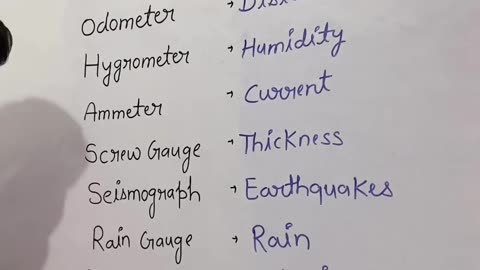 Odometer →
Hygrometer → Humidity
Ammeter → Current
Screw Gauge → Thickness
Seismograph → Earthquakes
Rain Gauge → Rain